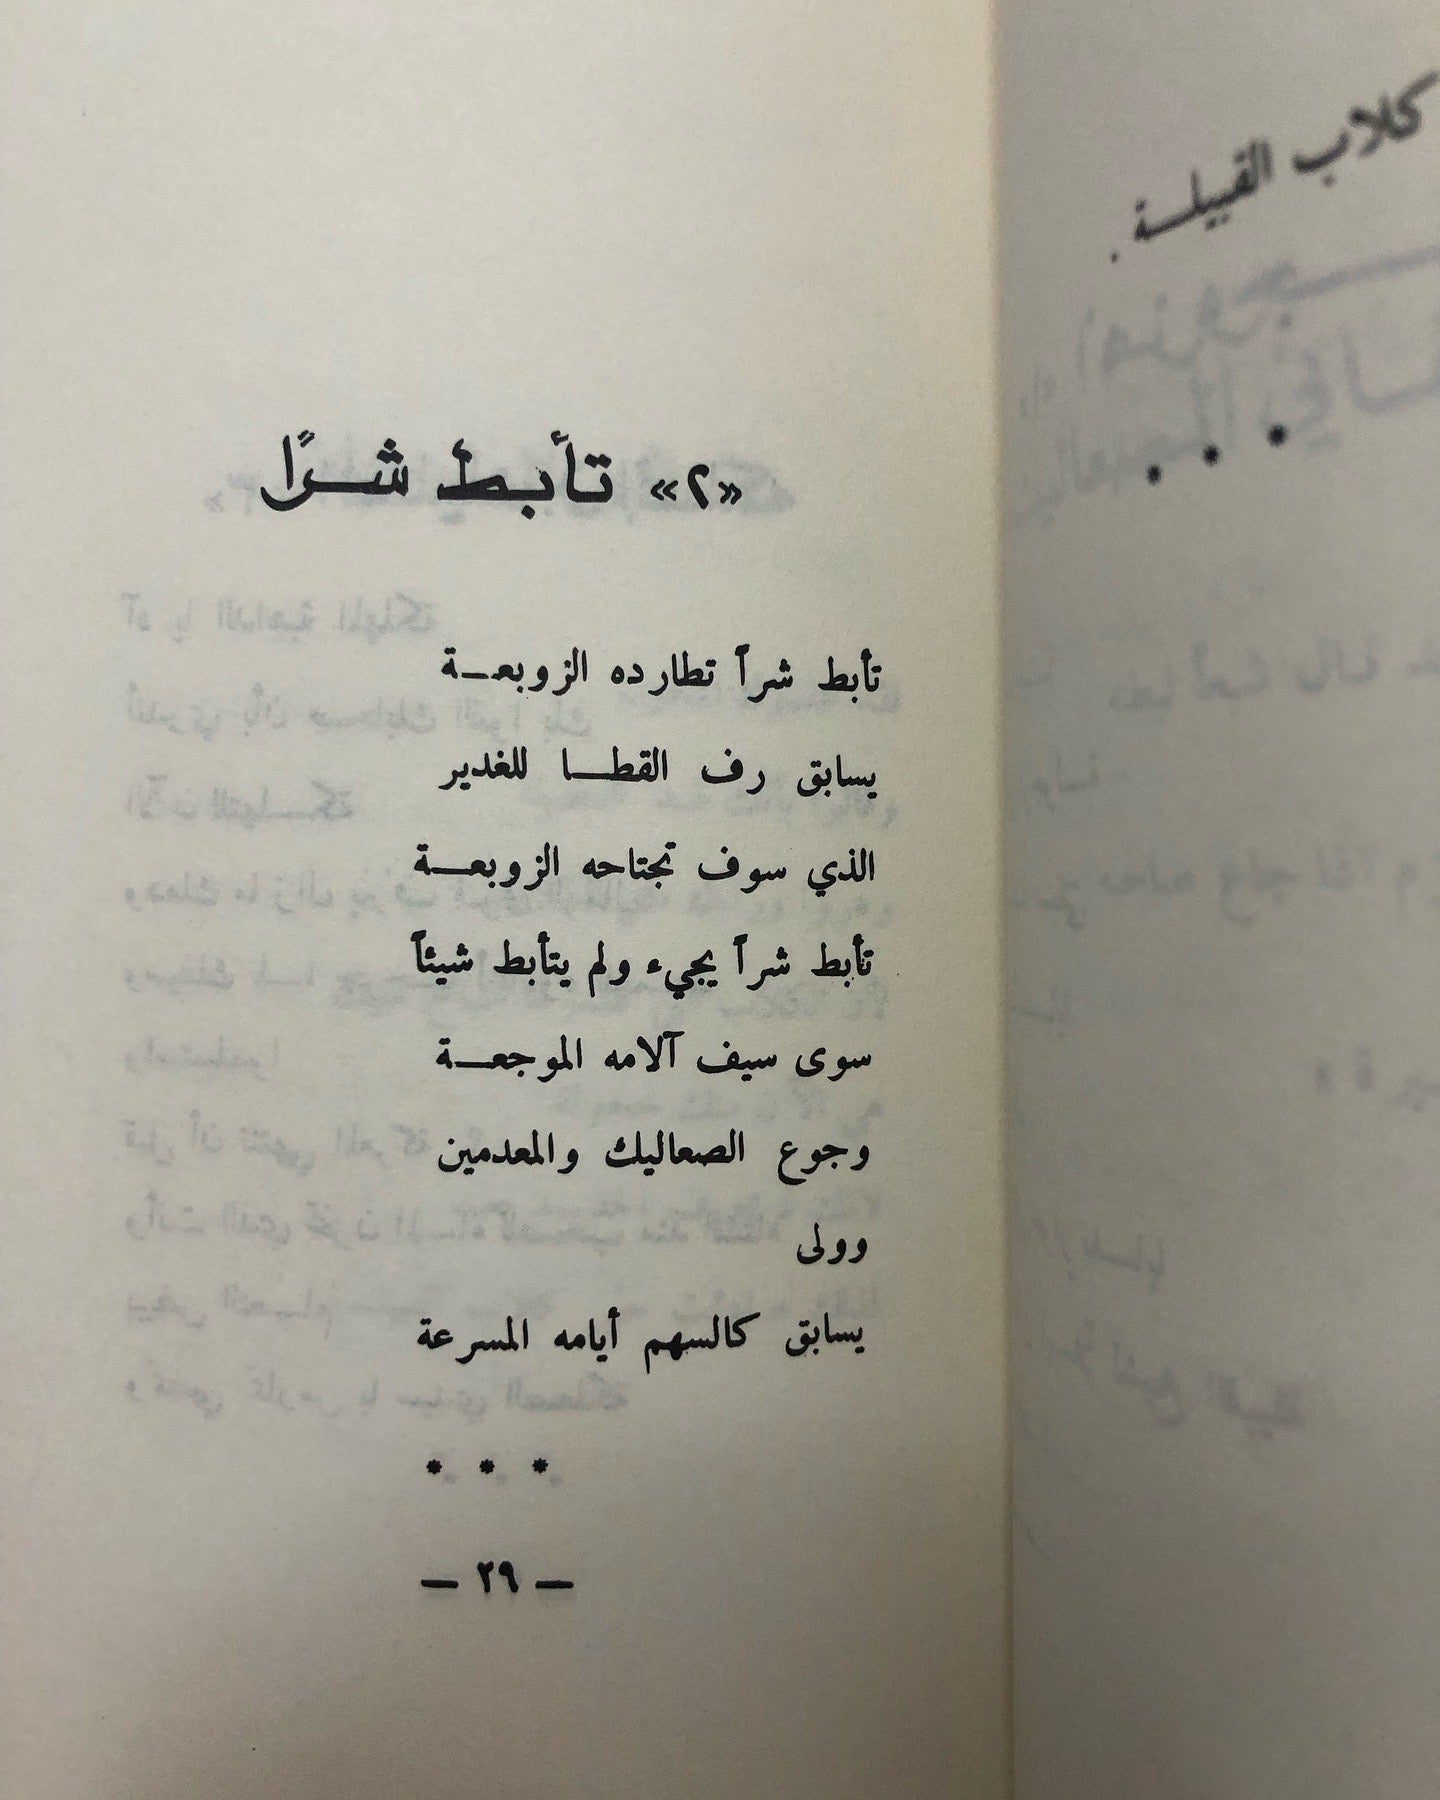 كلاب القبيلـــة .
* * *
«٢» تأبـط شـرًا
تأبط شراً تطارده الزوبعـــة
يسابق رف القطـــا للغدير
الذي سوف تجتاحه الزوبعـــة
تأبط شراً يجيء ولم يتأبط شيئاً
سوى سيف آلامه الموجعـــة
وجوع الصعاليك والمعدمين
وولى
يسابق كالسهم أيامه المسرعة
* * *
— ٢٩ —